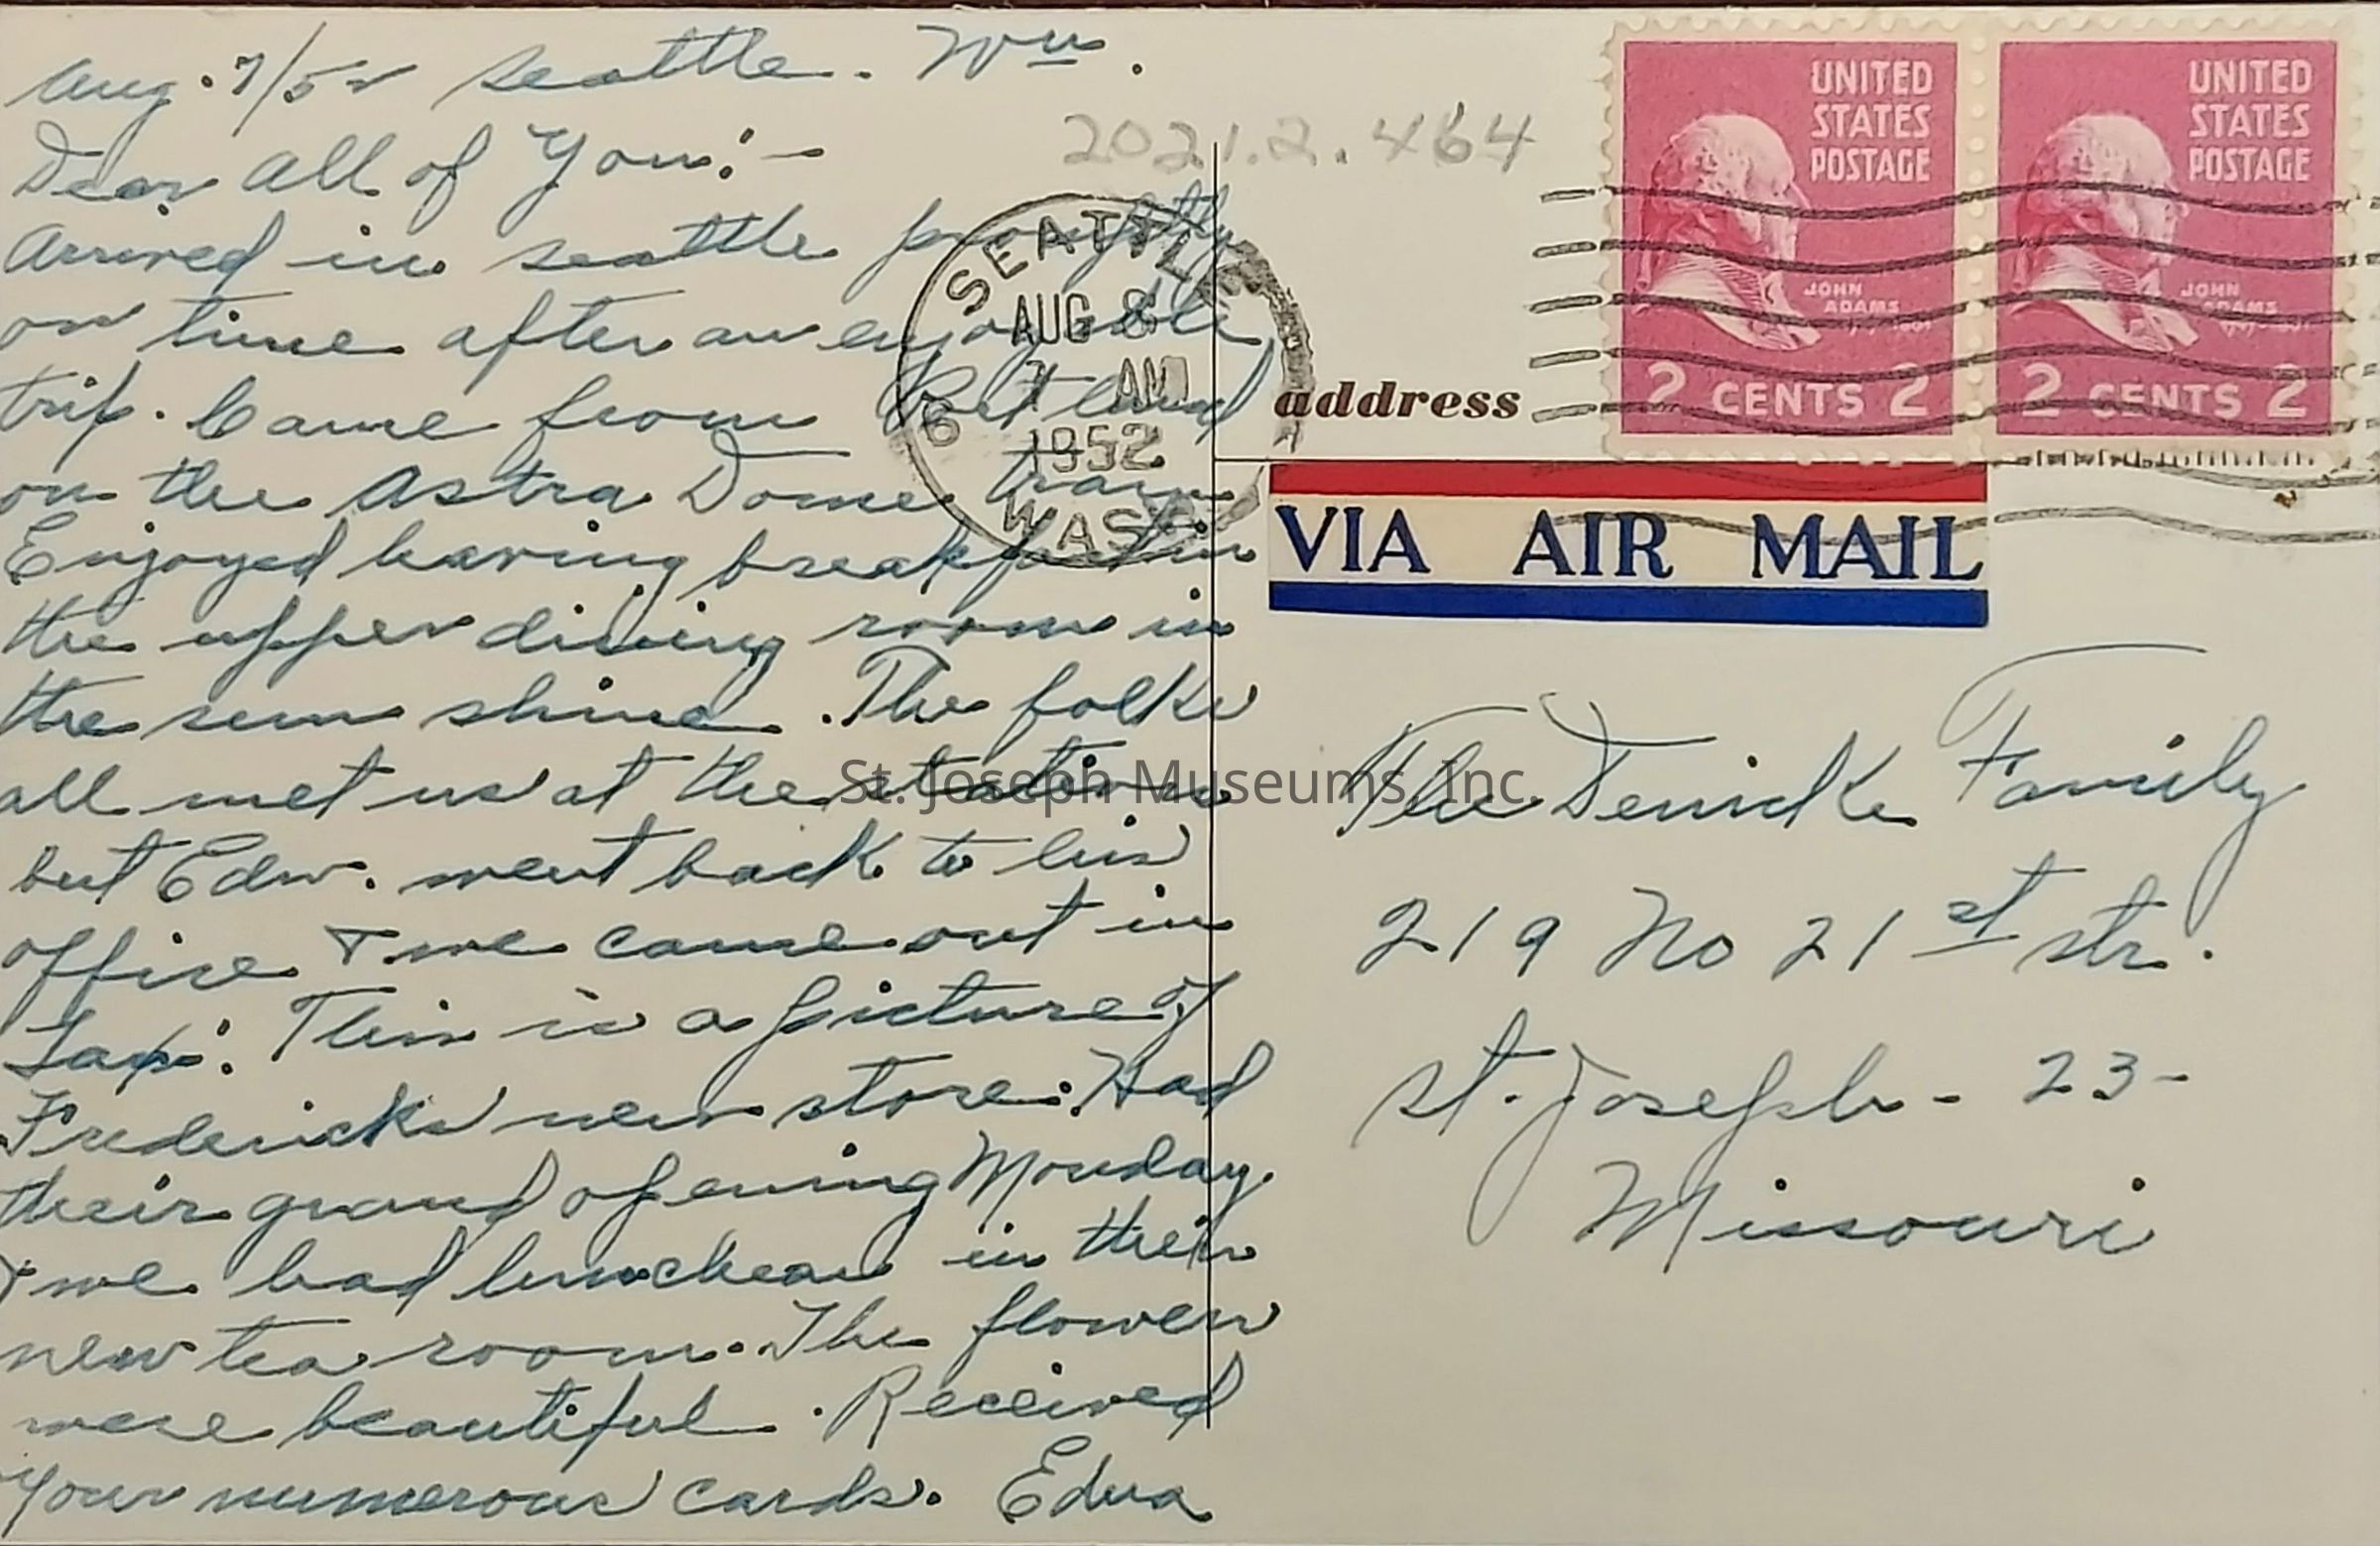 Aug. 7/52 Seattle. Wn.
Dear All of You:-
Arrived in Seattle promptly
on time after an enjoyable
trip. Came from Portland
on the Astra Dome train
Enjoyed having breakfast in
the upper dining room in
the sun shine. The folks
all met us at the station
but Edw. went back to his
office & we came out in
Taxi. This is a picture of
Fredericks new store. Had
their grand opening Monday.
& we had luncheon in their
new tea room. The flowers
were beautiful. Received
your numerous cards. Edna
2021.2.464
SEATTLE
AUG 8
7 AM
1952
WASH
6
UNITED
STATES
POSTAGE
JOHN
ADAMS
2 CENTS 2
UNITED
STATES
POSTAGE
JOHN
ADAMS
2 CENTS 2
address
VIA AIR MAIL
St. Joseph Museums, Inc.
The Family
219 No 21st str.
St. Joseph - 23 -
Missouri